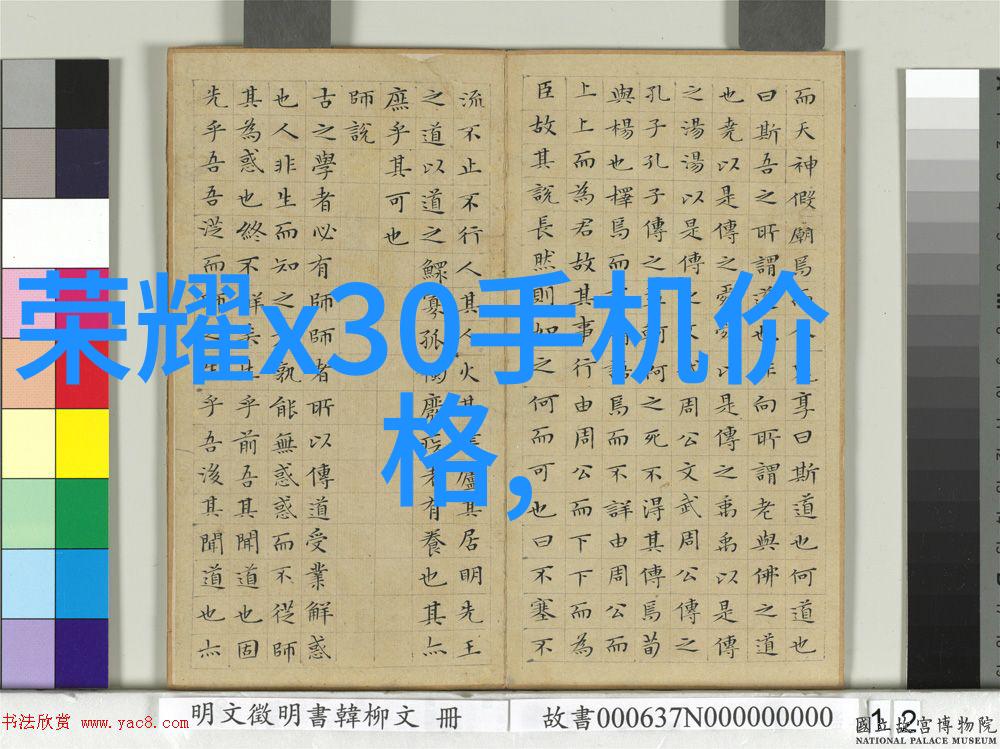 而天神假廟焉而人鬼享曰斯道也何道也
曰斯吾之所謂道也非向所謂老與佛之道
也堯以是傳之舜舜以是傳之禹禹以是傳
之湯湯以是傳之文武周公文武周公傳之
孔子孔子傳之孟軻軻之死不得其傳焉荀
與楊也擇焉而不精語焉而不詳由周公而
上上而為君故其事行由周公而下下而為
臣故其說長然則如之何而可也曰不塞不
流不止不行人其人火其書廬其居明先王
之道以道之鰥寡孤獨廢疾者有養也其亦
庶乎其可也
師說
古之學者必有師師者所以傳道受業解惑
也人非生而知之者孰能無惑惑而不從師
其為惑也終不解矣生乎前吾其聞道也固
先乎吾吾從而師之生乎吾後其聞道也亦
荣耀x30手机价
格,
明文徵明書韓柳文 冊
故書000637N000000000
12
书法欣赏 www.yac8.com
國立故宮博物院
NATIONAL PALACE MUSEUM